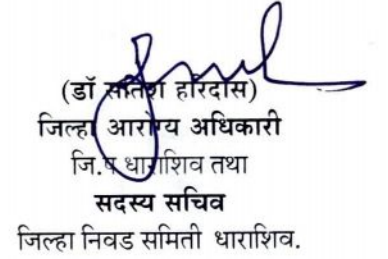 (डॉ सतिश हरिदास)
जिल्हा आरोग्य अधिकारी
जि.प धाराशिव तथा
सदस्य सचिव
जिल्हा निवड समिती धाराशिव.